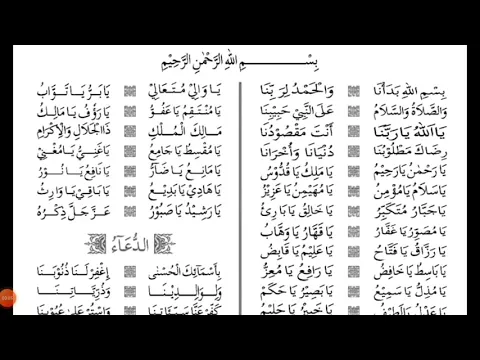 بِسْمِ اللهِ الرَّحْمٰنِ الرَّحِيْمِ
بِسْمِ اللهِ بَدَأْنَا وَالْحَمْدُ لِرَبِّنَا
وَالصَّلَاةُ وَالسَّلَامُ عَلَى النَّبِيِّ حَبِيْبِنَا
يَا اَللهُ يَا رَبَّنَا أَنْتَ مَقْصُوْدُنَا
رِضَاكَ مَطْلُوْبُنَا دُنْيَانَا وَأُخْرَانَا
يَا رَحْمٰنُ يَا رَحِيْمُ يَا مَلِكُ يَا قُدُّوْسُ
يَا سَلَامُ يَا مُؤْمِنُ يَا مُهَيْمِنُ يَا عَزِيْزُ
يَا جَبَّارُ مُتَكَبِّرُ يَا خَالِقُ يَا بَارِئُ
يَا مُصَوِّرُ يَا غَفَّارُ يَا قَهَّارُ يَا وَهَّابُ
يَا رَزَّاقُ يَا فَتَّاحُ يَا عَلِيْمُ يَا قَابِضُ
يَا بَاسِطُ يَا خَافِضُ يَا رَافِعُ يَا مُعِزُّ
يَا مُذِلُّ يَا سَمِيْعُ يَا بَصِيْرُ يَا حَكَمُ
يَا عَدْلُ يَا لَطِيْفُ يَا خَبِيْرُ يَا حَلِيْمُ
يَا وَالِيْ مُتَعَالِيْ يَا بَرُّ يَا تَوَّابُ
يَا مُنْتَقِمُ يَا عَفُوُّ يَا رَؤُفُ يَا مَالِكُ
مَالِكَ الْمُلْكِ ذَا الْجَلَالِ وَالْإِكْرَامِ
يَا مُقْسِطُ يَا جَامِعُ يَا غَنِيُّ يَا مُغْنِيْ
يَا مَانِعُ يَا ضَآرُّ يَا نَافِعُ يَا نُوْرُ
يَا هَادِيْ يَا بَدِيْعُ يَا بَاقِيْ يَا وَارِثُ
يَا رَشِيْدُ يَا صَبُوْرُ عَزَّ جَلَّ ذِكْرُهُ
الدُّعَاءُ
بِأَسْمَائِكَ الْحُسْنٰى إِغْفِرْ لَنَا ذُنُوْبَنَا
وَلِوَالِدِيْنَا وَذُرِّيَّاتِنَا
كَفِّرْ عَنَّا سَيِّئَاتِنَا وَاسْتُرْ عَلَى عُيُوْبِنَا